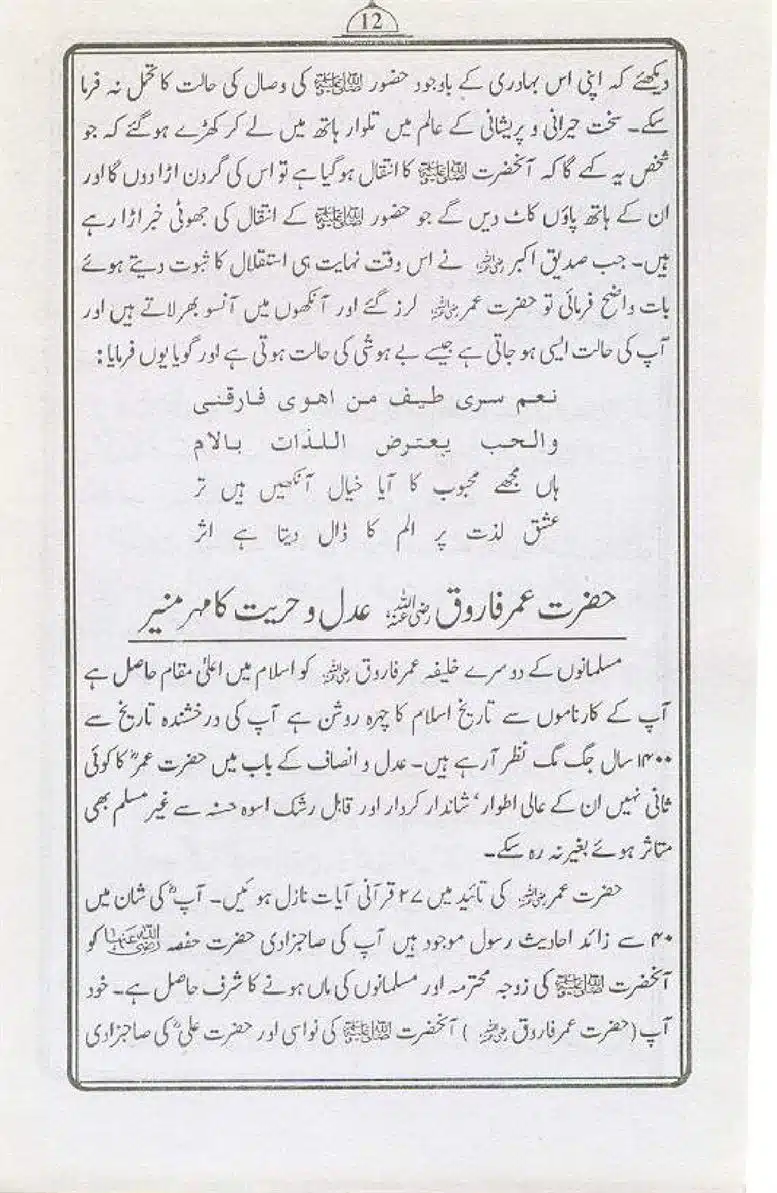 12
دیکھئے کہ اپنی اس بہادری کے باوجود حضور ﷺ کی وصال کی حالت کا تحمل نہ فرما
سکے۔ سخت حیرانی و پریشانی کے عالم میں تلوار ہاتھ میں لے کر کھڑے ہو گئے کہ جو
شخص یہ کہے گا کہ آنحضرت ﷺ کا انتقال ہو گیا ہے تو اس کی گردن اڑا دوں گا اور
ان کے ہاتھ پاؤں کاٹ دیں گے جو حضور ﷺ کے انتقال کی جھوٹی خبر اڑا رہے
ہیں۔ جب صدیق اکبر رضی اللہ عنہ نے اس وقت نہایت ہی استقلال کا ثبوت دیتے ہوئے
بات واضح فرمائی تو حضرت عمر رضی اللہ عنہ لرز گئے اور آنکھوں میں آنسو بھر لاتے ہیں اور
آپ کی حالت ایسی ہو جاتی ہے جیسے بے ہوشی کی حالت ہوتی ہے اور گویا یوں فرمایا:
نعم سری طیف من اھوی فارقنی
والحب یعترض اللذات بالام
ہاں مجھے محبوب کا آیا خیال آنکھیں ہیں تر
عشق لذت پر الم کا ڈال دیتا ہے اثر
حضرت عمر فاروق رضی اللہ عنہ عدل و حریت کا مہر منیر
مسلمانوں کے دوسرے خلیفہ عمر فاروق رضی اللہ عنہ کو اسلام میں اعلیٰ مقام حاصل ہے
آپ کے کارناموں سے تاریخ اسلام کا چہرہ روشن ہے آپ کی درخشندہ تاریخ سے
۱۴۰۰ سال جگ مگ نظر آرہے ہیں۔ عدل و انصاف کے باب میں حضرت عمرؓ کا کوئی
ثانی نہیں ان کے عالی اطوار‘ شاندار کردار اور قابل رشک اسوہ حسنہ سے غیر مسلم بھی
متاثر ہوئے بغیر نہ رہ سکے۔
حضرت عمر رضی اللہ عنہ کی تائید میں ۲۷ قرآنی آیات نازل ہوئیں۔ آپؓ کی شان میں
۴۰ سے زائد احادیث رسول موجود ہیں آپ کی صاحبزادی حضرت حفصہ رضی اللہ عنہا کو
آنحضرت ﷺ کی زوجہ محترمہ اور مسلمانوں کی ماں ہونے کا شرف حاصل ہے۔ خود
آپ (حضرت عمر فاروق رضی اللہ عنہ) آنحضرت ﷺ کی نواسی اور حضرت علیؓ کی صاحبزادی